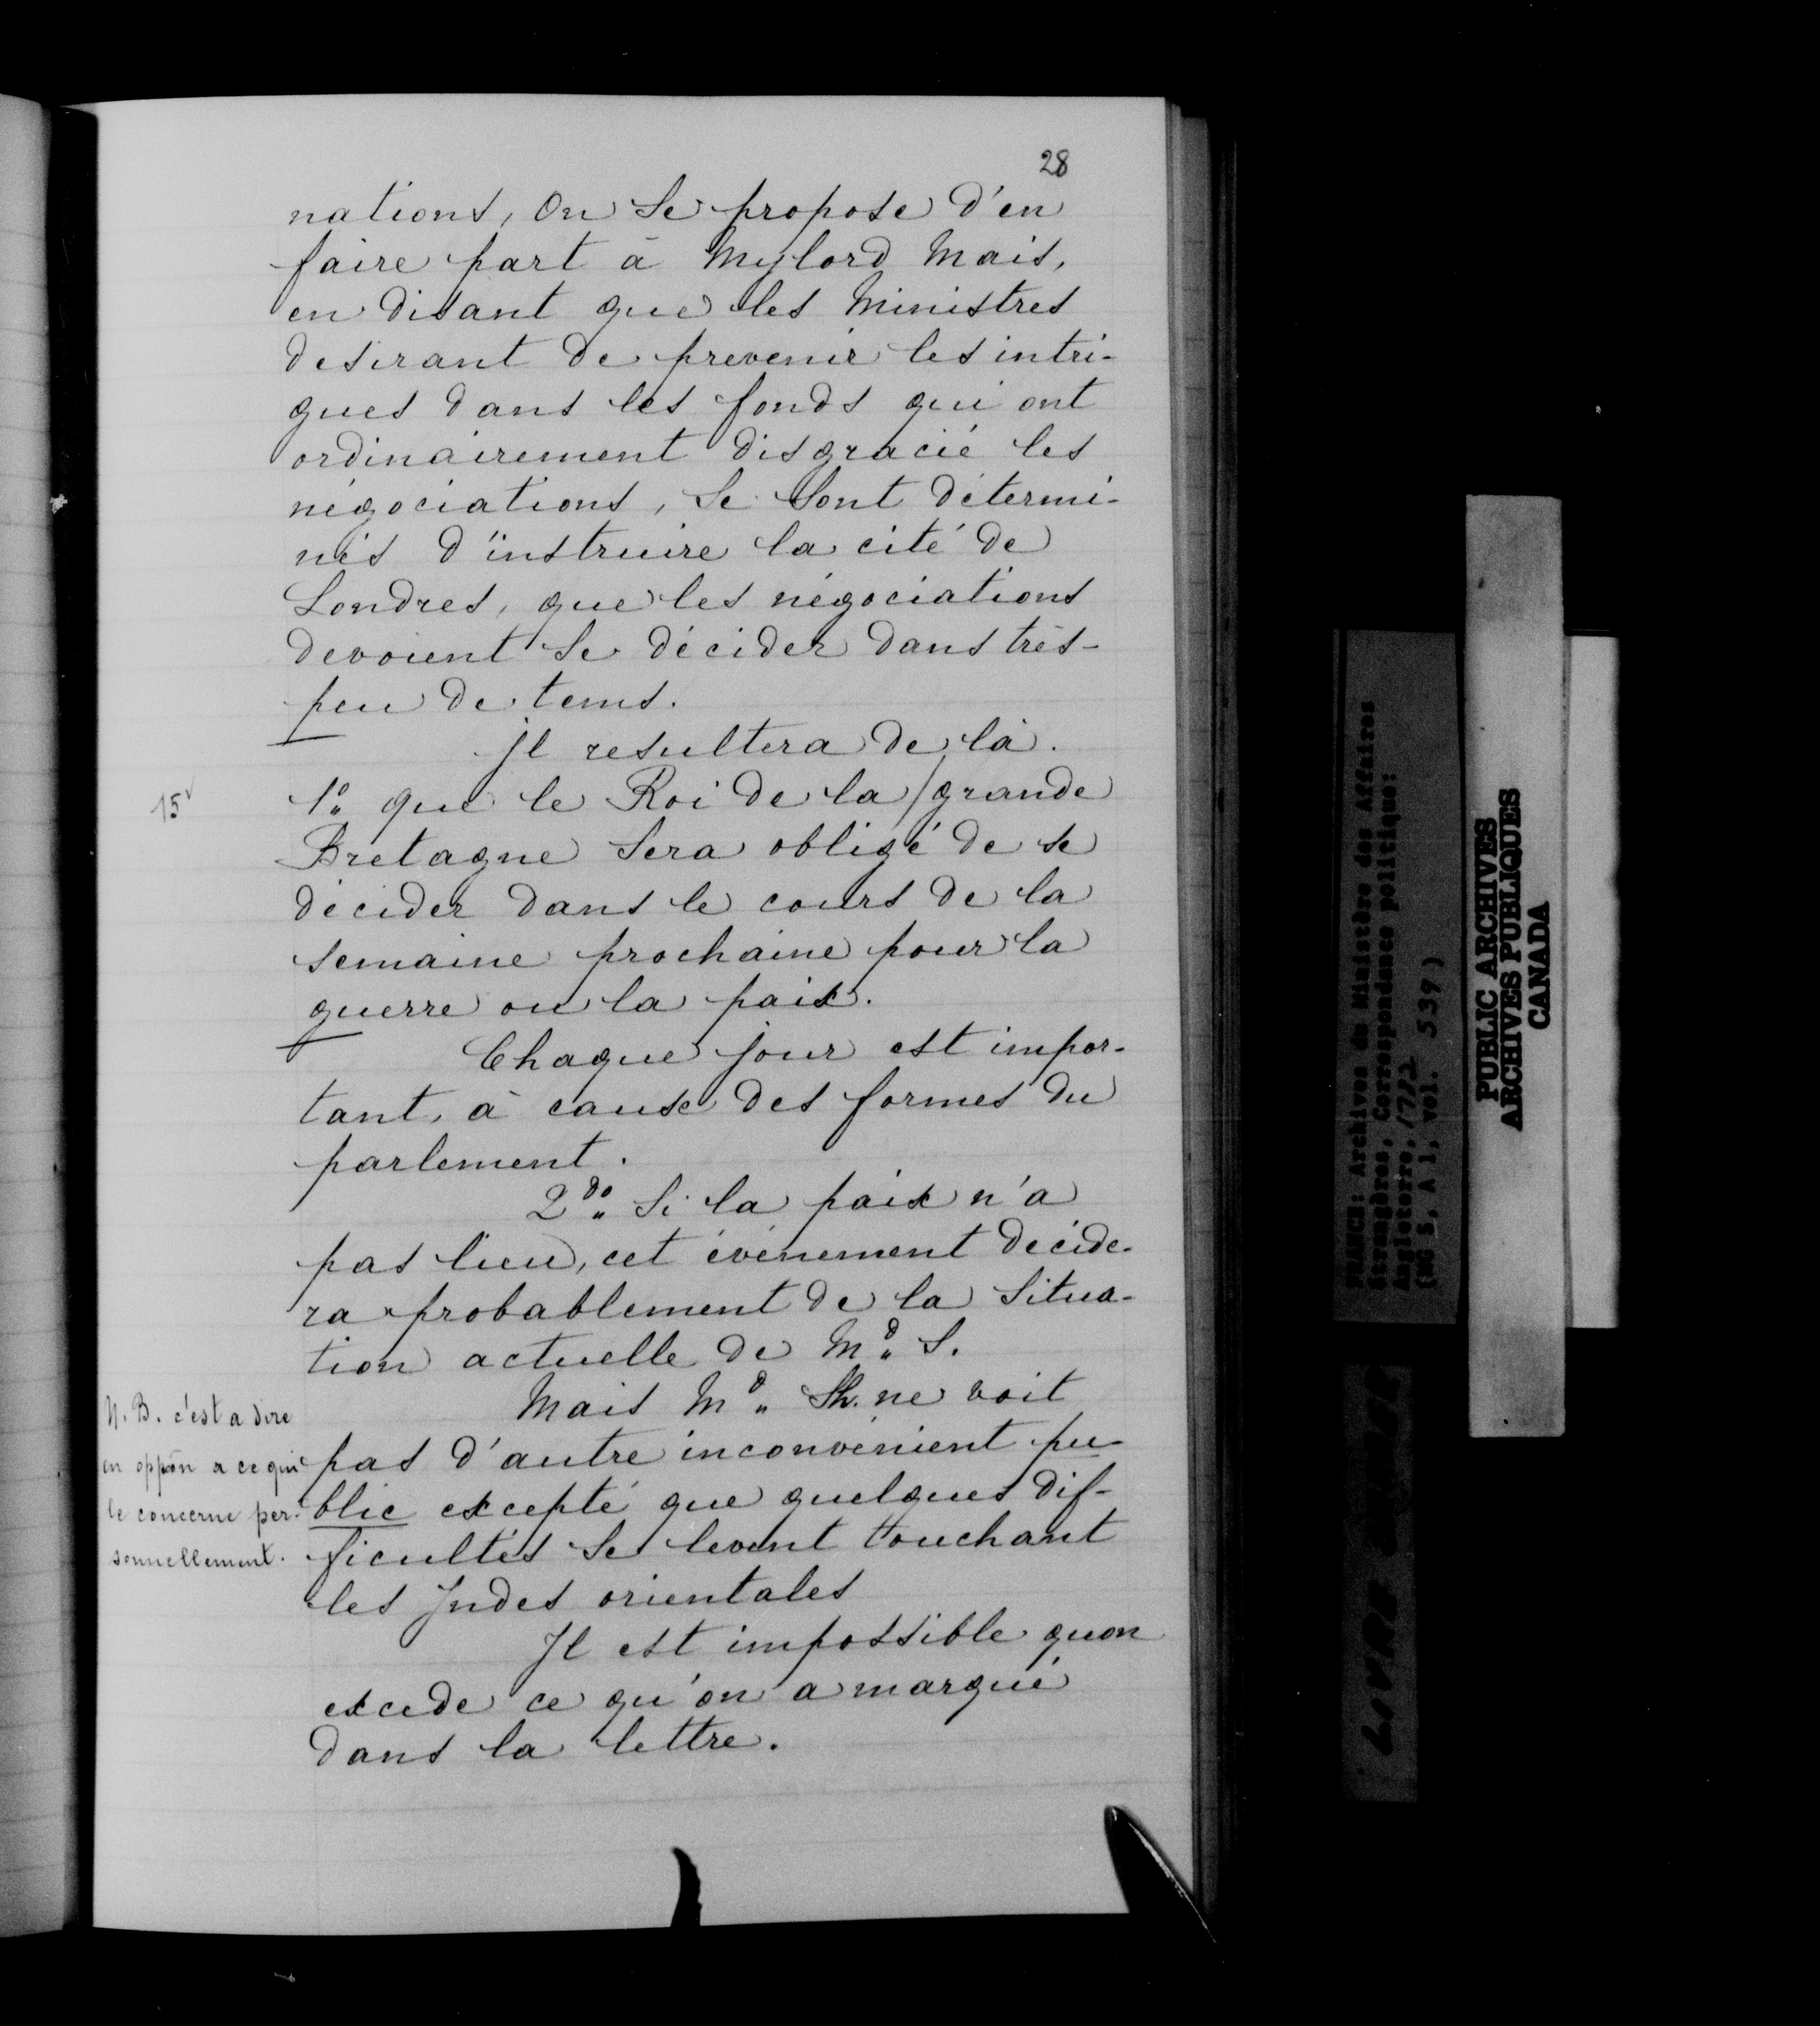 28
nations, On se propose d'en
faire part à Mylord Mais,
en disant que les Ministres
desirant de prevenir les intri-
gues dans les fonds qui ont
ordinairement disgracié les
négociations, se sont détermi-
nés d'instruire la cité de
Londres, que les négociations
devoient se décider dans très-
peu de tems.
Jl resultera de là.
15
1º que le Roi de la / grande
Bretagne sera obligé de se
décider dans le cours de la
semaine prochaine pour la
guerre ou la paix.
Chaque jour est impor-
tant, à cause des formes du
parlement.
2do Si la paix n'a
pas lieu, cet évènement décide-
ra probablement de la situa-
tion actuelle de Md S.
Mais Md Sh. ne voit
pas d'autre inconvénient pu-
blic excepté que quelques dif-
ficultés se levent touchant
les Jndes orientales
N. B. c'est a dire
en oppôn a ce qui
le concerne per-
sonnellement.
Jl est impossible quon
excede ce qu'on a marqué
dans la lettre.
FRANCE: Archives du Ministère des Affaires
Étrangères, Correspondance politique:
Angleterre, 1782
(MG 5, A 1, vol. 539)
PUBLIC ARCHIVES
ARCHIVES PUBLIQUES
CANADA